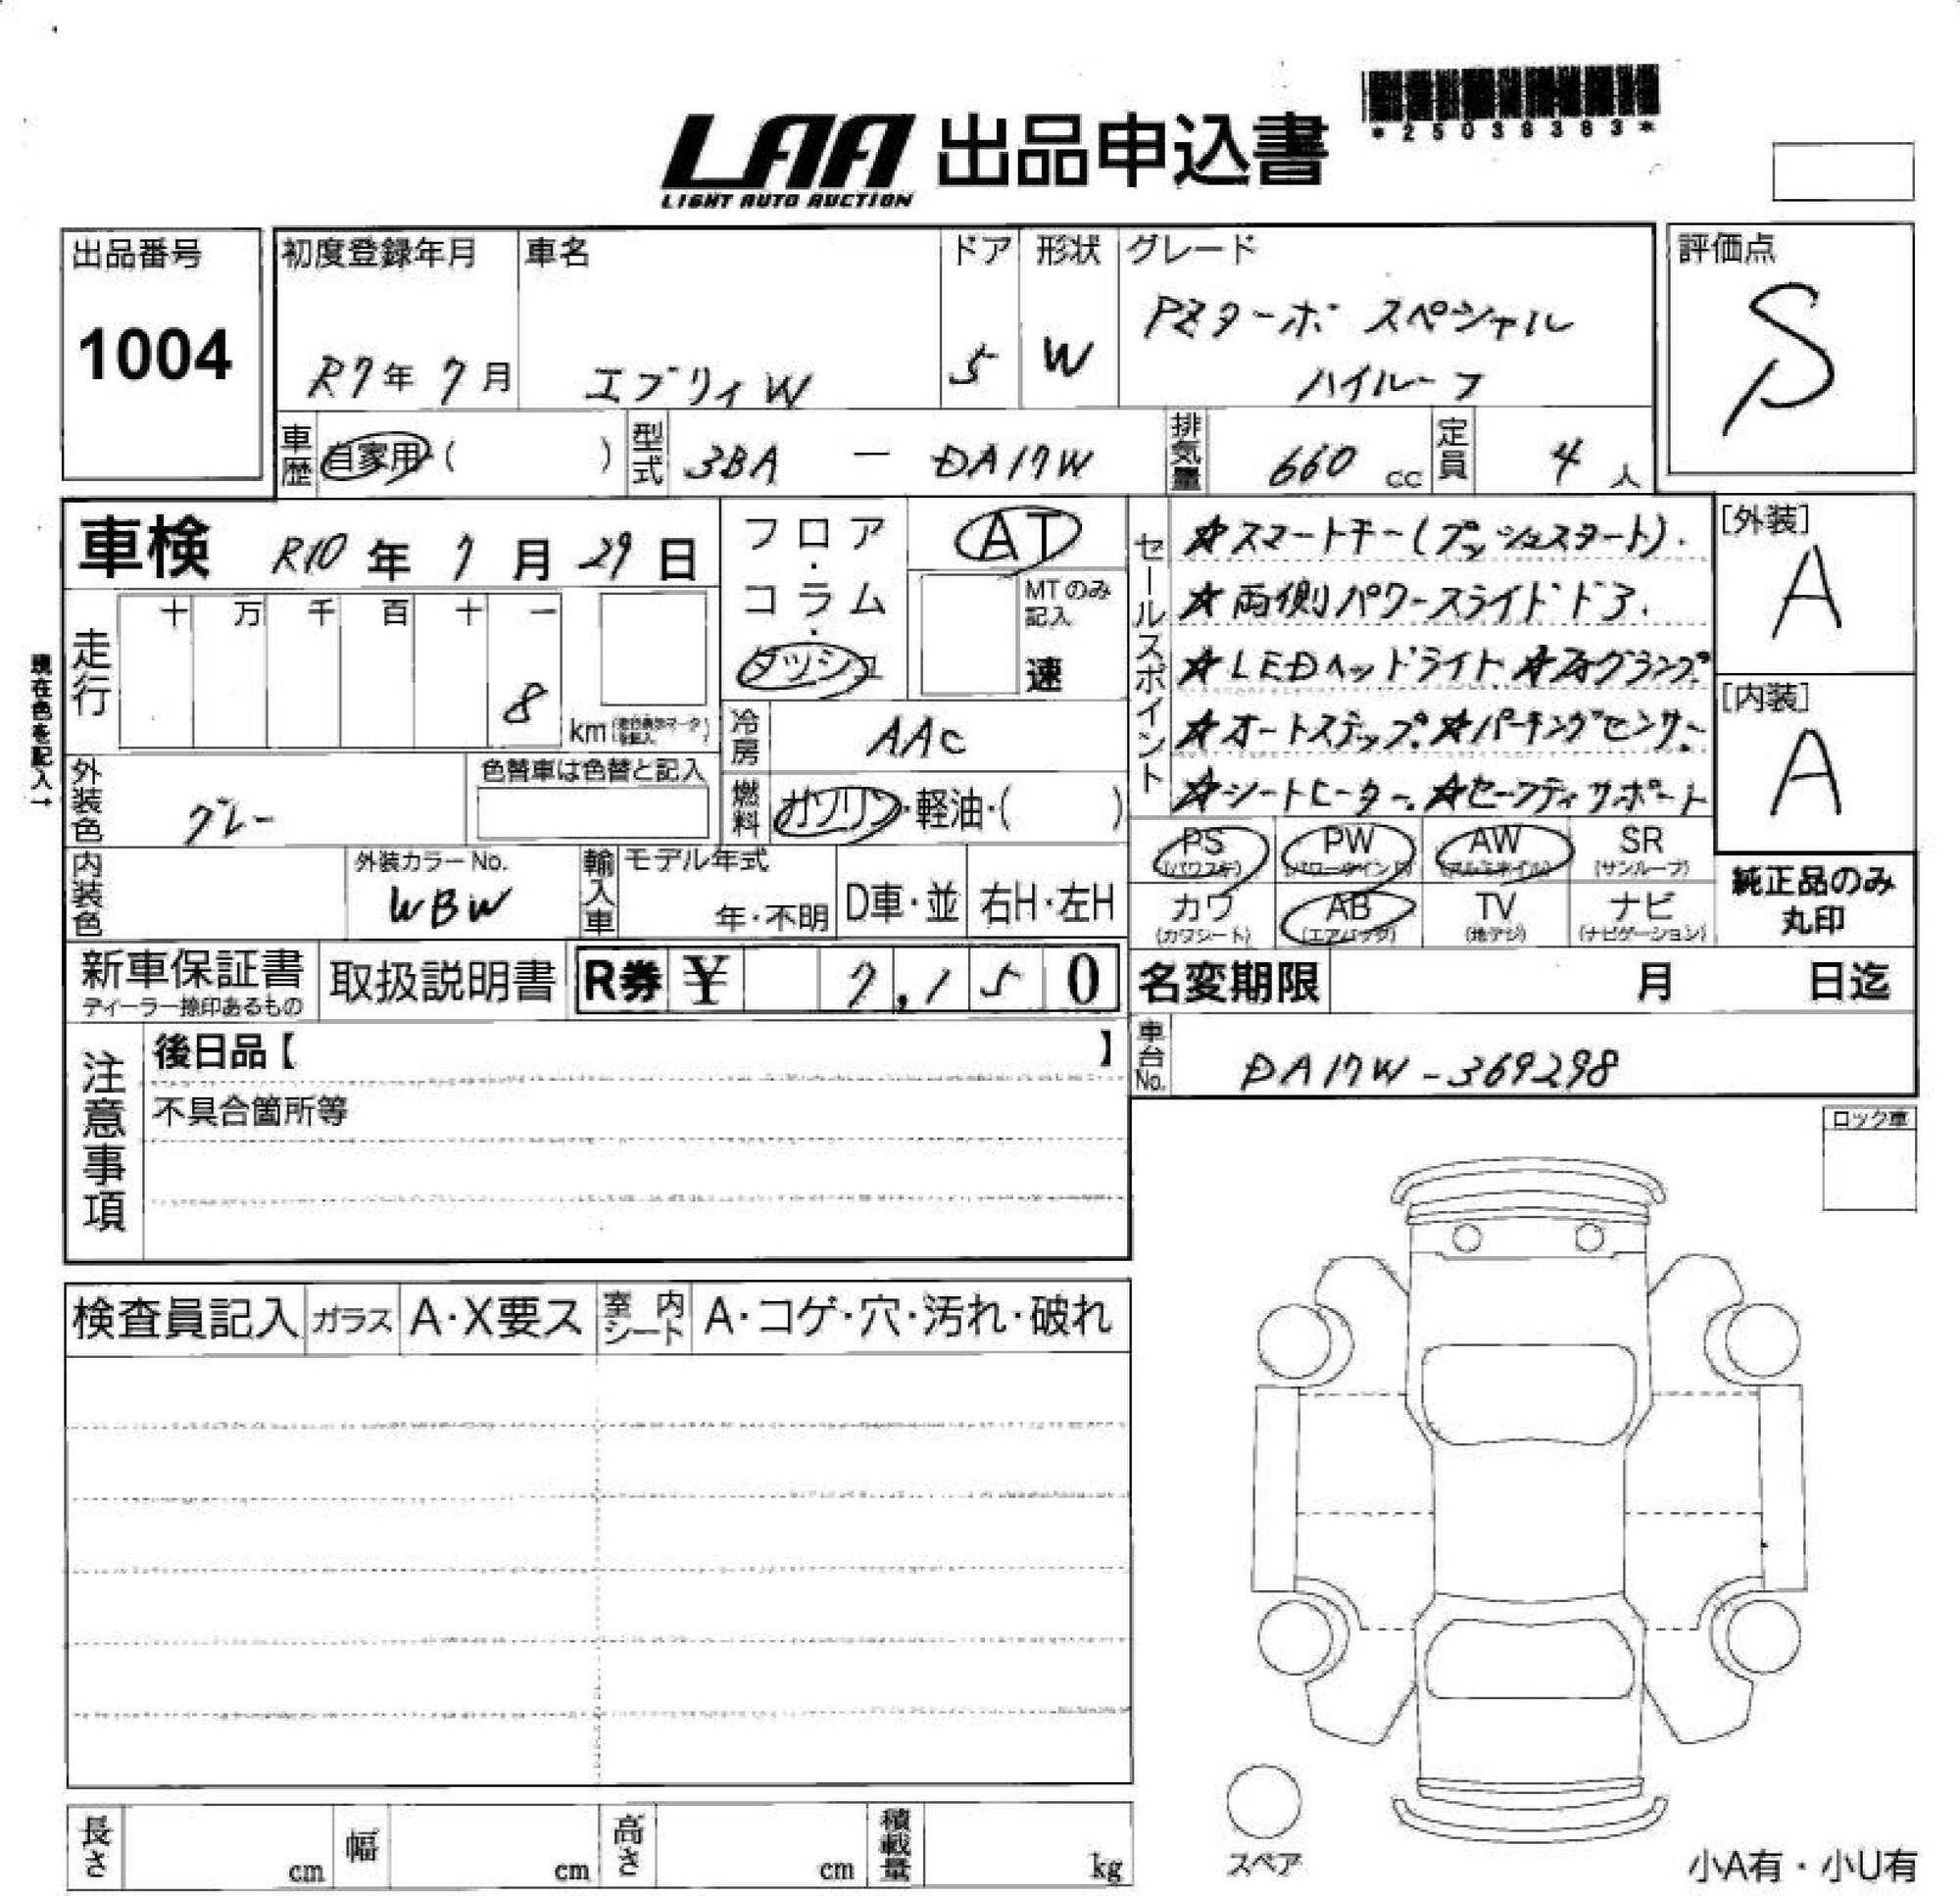 *25038383*
LAA 出品申込書
LIGHT AUTO AUCTION
出品番号
1004
初度登録年月
R7年 7月
車名
エブリィW
ドア
5
形状
W
グレード
PZターボ スペシャル
ハイルーフ
評価点
S
車歴
自家用・( )
型式
3BA - DA17W
排気量
660 cc
定員
4 人
車検 R10年 7月 29日
フロア・コラム・ダッシュ
AT
MTのみ記入
速
セールスポイント
☆スマートキー(プッシュスタート).
☆両側パワースライドドア.
☆LEDヘッドライト ☆フォグランプ
☆オートステップ. ☆パーキングセンサー
☆シートヒーター. ☆セーフティサポート
[外装]
A
[内装]
A
現在色を記入→
走行
十 万 千 百 十 一
8 km
冷房
AAC
燃料
ガソリン・軽油・( )
外装色
グレー
色替車は色替と記入
内装色
外装カラーNo.
WBW
輸入車
モデル年式
年・不明
D車・並
右H・左H
PS (パワステ)
PW (パワーウインド)
AW (アルミホイル)
SR (サンルーフ)
カワ (カワシート)
AB (エアバック)
TV (地デジ)
ナビ (ナビゲーション)
純正品のみ
丸印
新車保証書
ディーラー捺印あるもの
取扱説明書
R券 ¥ 7,150
名変期限 月 日迄
車台No.
DA17W-369298
注意事項
後日品【 】
不具合箇所等
ロック車
検査員記入
ガラス
A・X要ス
室内シート
A・コゲ・穴・汚れ・破れ
長さ cm
幅 cm
高さ cm
積載量 kg
スペア
小A有・小U有